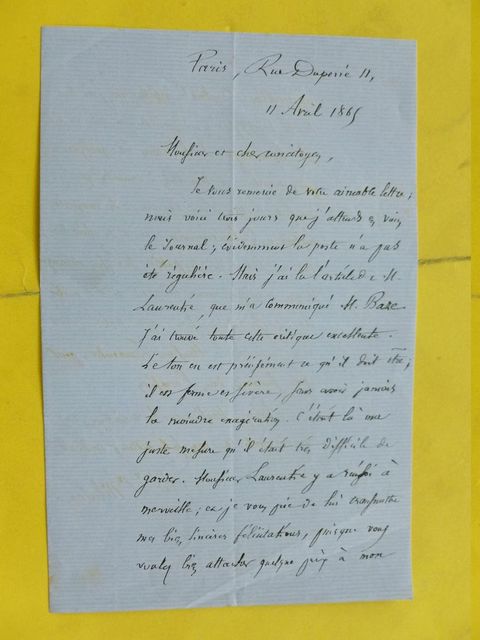 Paris, Rue Duperré 11,
11 Avril 1865
Monsieur et cher concitoyen,
Je vous remercie de votre aimable lettre ;
mais voici trois jours que j'attends en vain
le Journal ; évidemment la poste n'a pas
été régulière. Mais j'ai lu l'article de M.
Laurentie, que m'a communiqué M. Baze
J'ai trouvé toute cette critique excellente.
Le ton en est précisément ce qu'il doit être ;
il est ferme et sévère, sans avoir jamais
la moindre exagération. C'était là une
juste mesure qu'il était très difficile de
garder. Monsieur Laurentie y a réussi à
merveille ; et je vous prie de lui transmettre
mes bien sincères félicitations, puisque vous
voulez bien attacher quelque prix à mon